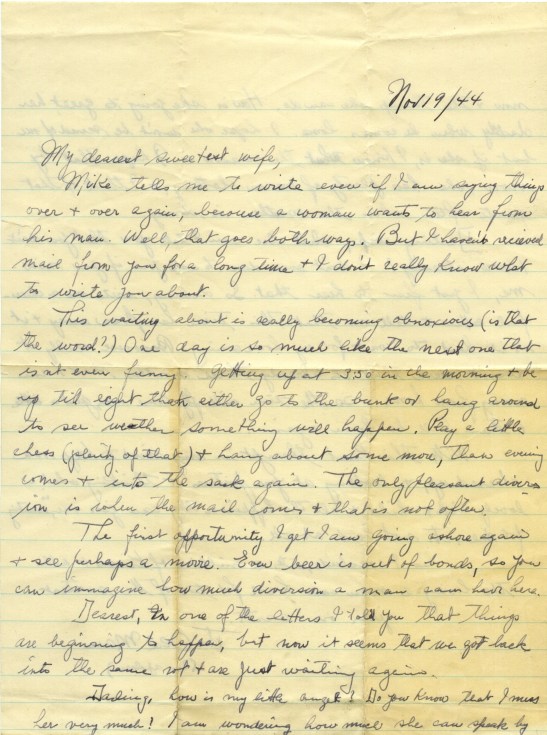 Nov 19/44
My dearest sweetest wife,
Mike tells me to write even if I am saying things
over + over again, becouse a woman wants to hear from
his man. Well, that goes both ways. But I haven't recieved
mail from you for a long time + I don't really know what
to write you about.
This waiting about is really becoming obnoxious (is that
the word?) One day is so much like the next one that
isn't even funny. Getting up at 330 in the morning + be
up till eight than either go to the bunk or hang around
to see weather something will happen. Play a little
chess (plenty of that) + hang about some more, than evening
comes + into the sack again. The only pleasant divers-
ion is when the mail comes + that is not often.
The first opportunity I get I am going ashore again
+ see perhaps a movie. Even beer is out of bonds, so you
can immagine how much diversion a man can have here.
Dearest, in one of the letters I told you that things
are beginning to happen, but now it seems that we got back
into the same rot + are just waiting again.
Darling, how is my little angel? Do you know that I miss
her very much! I am wondering how much she can speak by